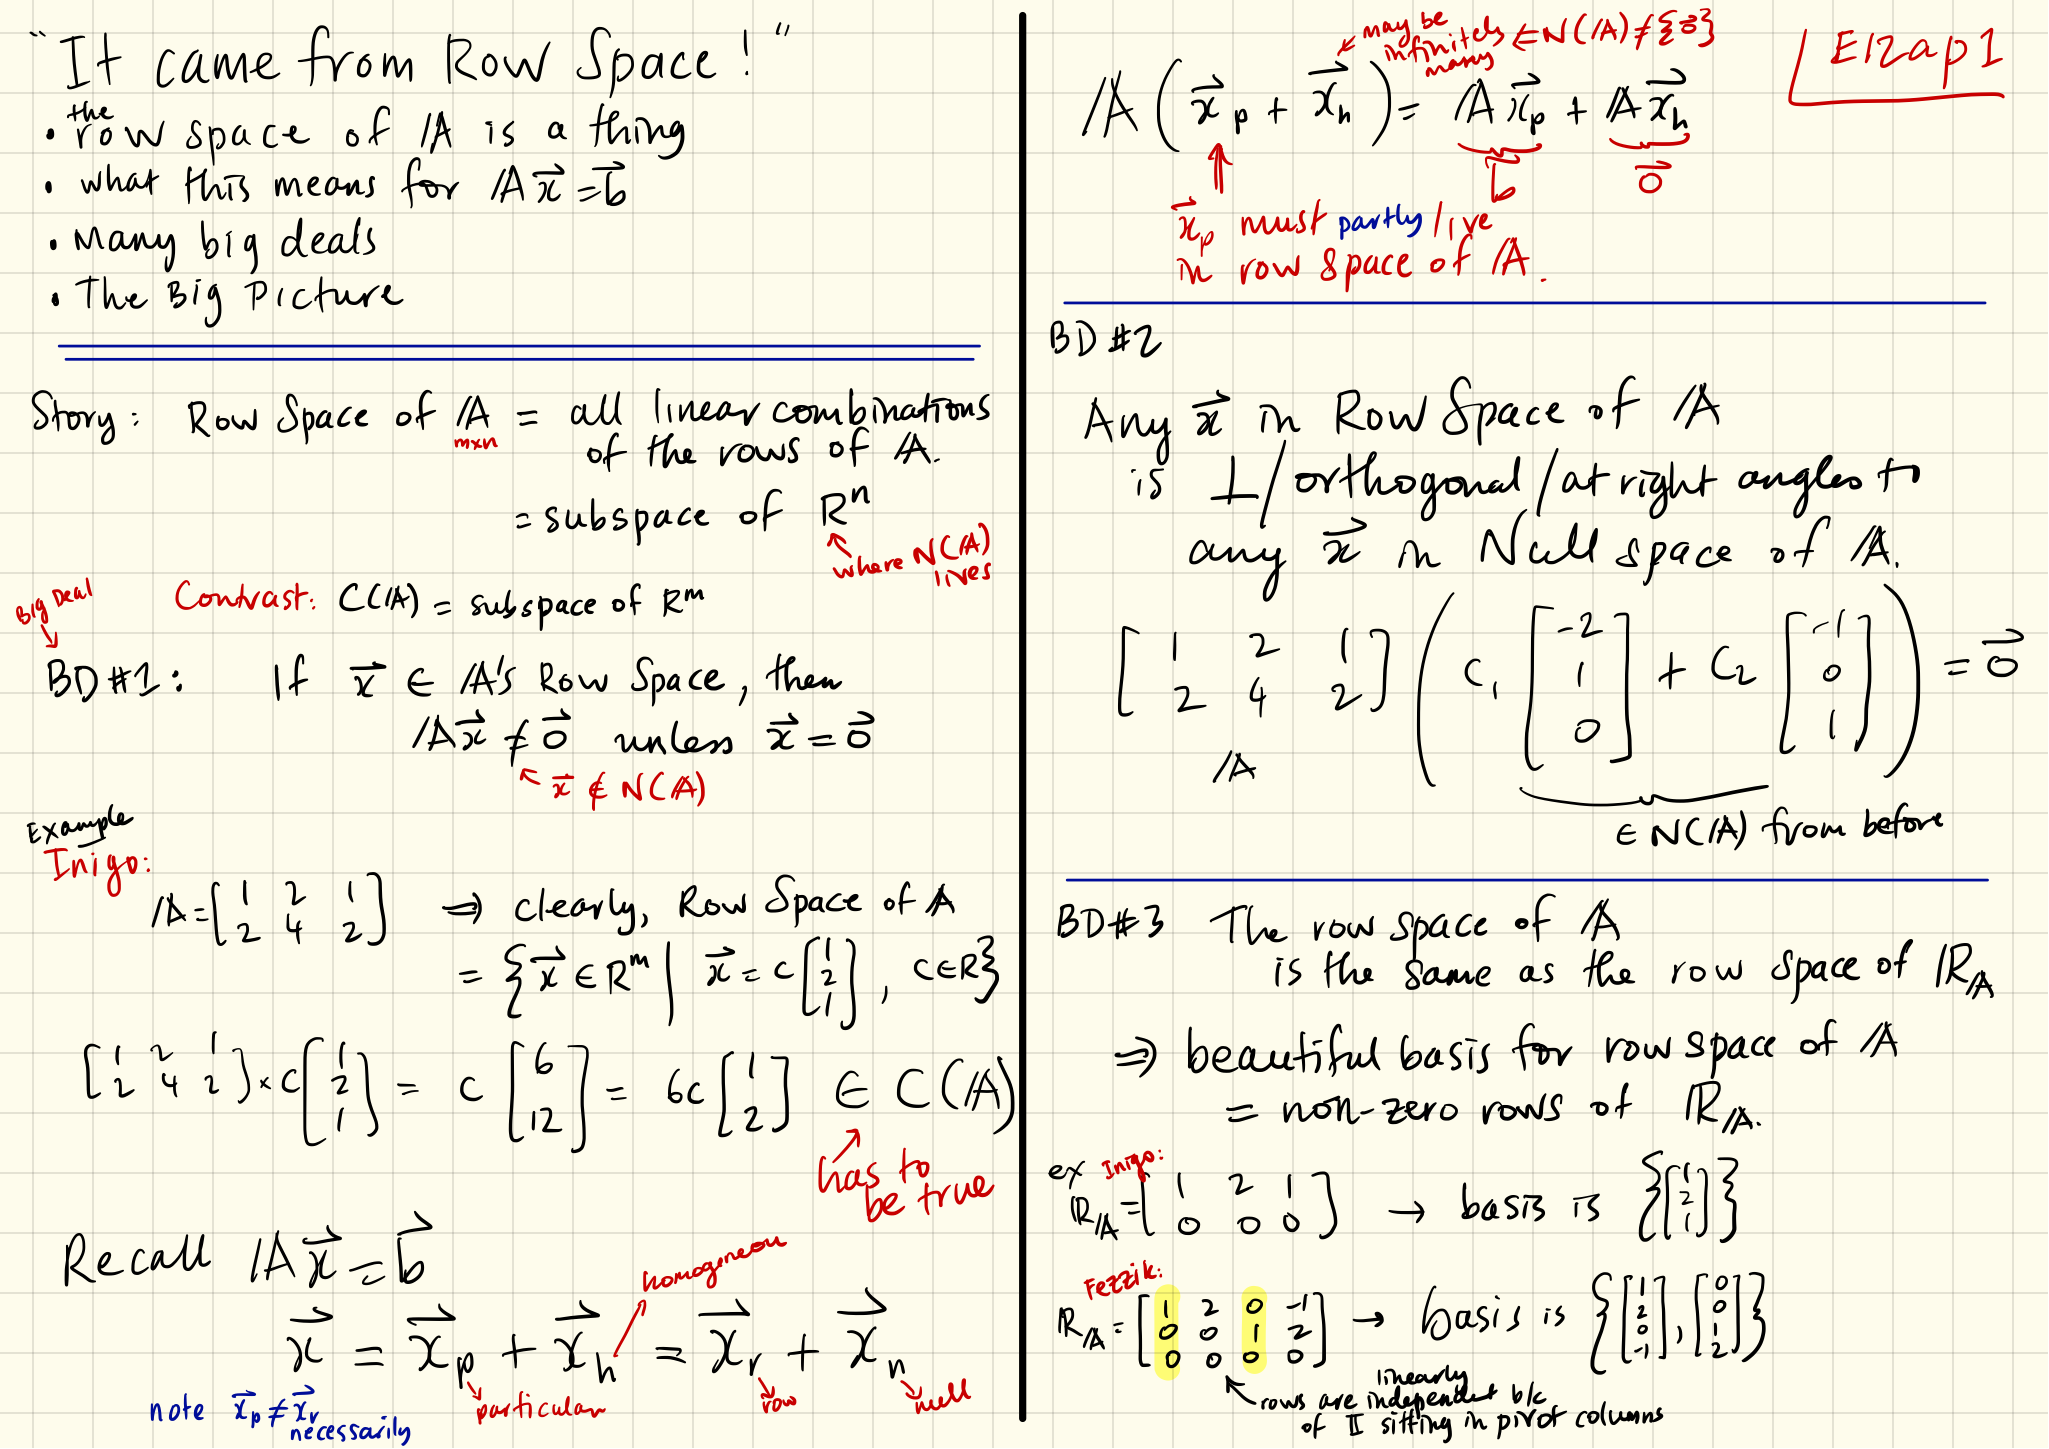 "It came from Row Space!"
• the row space of A is a thing
• what this means for Ax⃗ = b⃗
• Many big deals
• The Big Picture
Story: Row Space of A = all linear combinations
m×n
of the rows of A.
= subspace of Rⁿ
where N(A) lives
Contrast: C(A) = subspace of Rᵐ
Big Deal
BD #1: If x⃗ ∈ A's Row Space, then
Ax⃗ ≠ 0⃗ unless x⃗ = 0⃗
x⃗ ∉ N(A)
Example
Inigo:
A = [1 2 1; 2 4 2] ⇒ clearly, Row Space of A
= {x⃗ ∈ Rᵐ | x⃗ = c [1; 2; 1], c ∈ R}
[1 2 1; 2 4 2] × c [1; 2; 1] = c [6; 12] = 6c [1; 2] ∈ C(A)
has to
be true
Recall Ax⃗ = b⃗
homogeneou
x⃗ = x⃗p + x⃗h = x⃗r + x⃗n
particular
row
null
note x⃗p ≠ x⃗r
necessarily
may be
infinitely
many
∈ N(A) ≠ {0⃗}
E12ap1
A(x⃗p + x⃗h) = Ax⃗p + Ax⃗h
b⃗ 0⃗
x⃗p must partly live
in row space of A.
BD #2
Any x⃗ in Row Space of A
is ⊥/orthogonal/at right angles to
any x⃗ in Null space of A.
[1 2 1; 2 4 2] (c₁ [-2; 1; 0] + c₂ [-1; 0; 1]) = 0⃗
A
∈ N(A) from before
BD #3 The row space of A
is the same as the row space of R_A
⇒ beautiful basis for row space of A
= non-zero rows of R_A.
ex Inigo:
R_A = [1 2 1; 0 0 0] → basis is {[1; 2; 1]}
Fezzik:
R_A = [1 2 0 -1; 0 0 1 2; 0 0 0 0] → basis is {[1; 2; 0; -1], [0; 0; 1; 2]}
linearly
rows are independent b/c
of I sitting in pivot columns